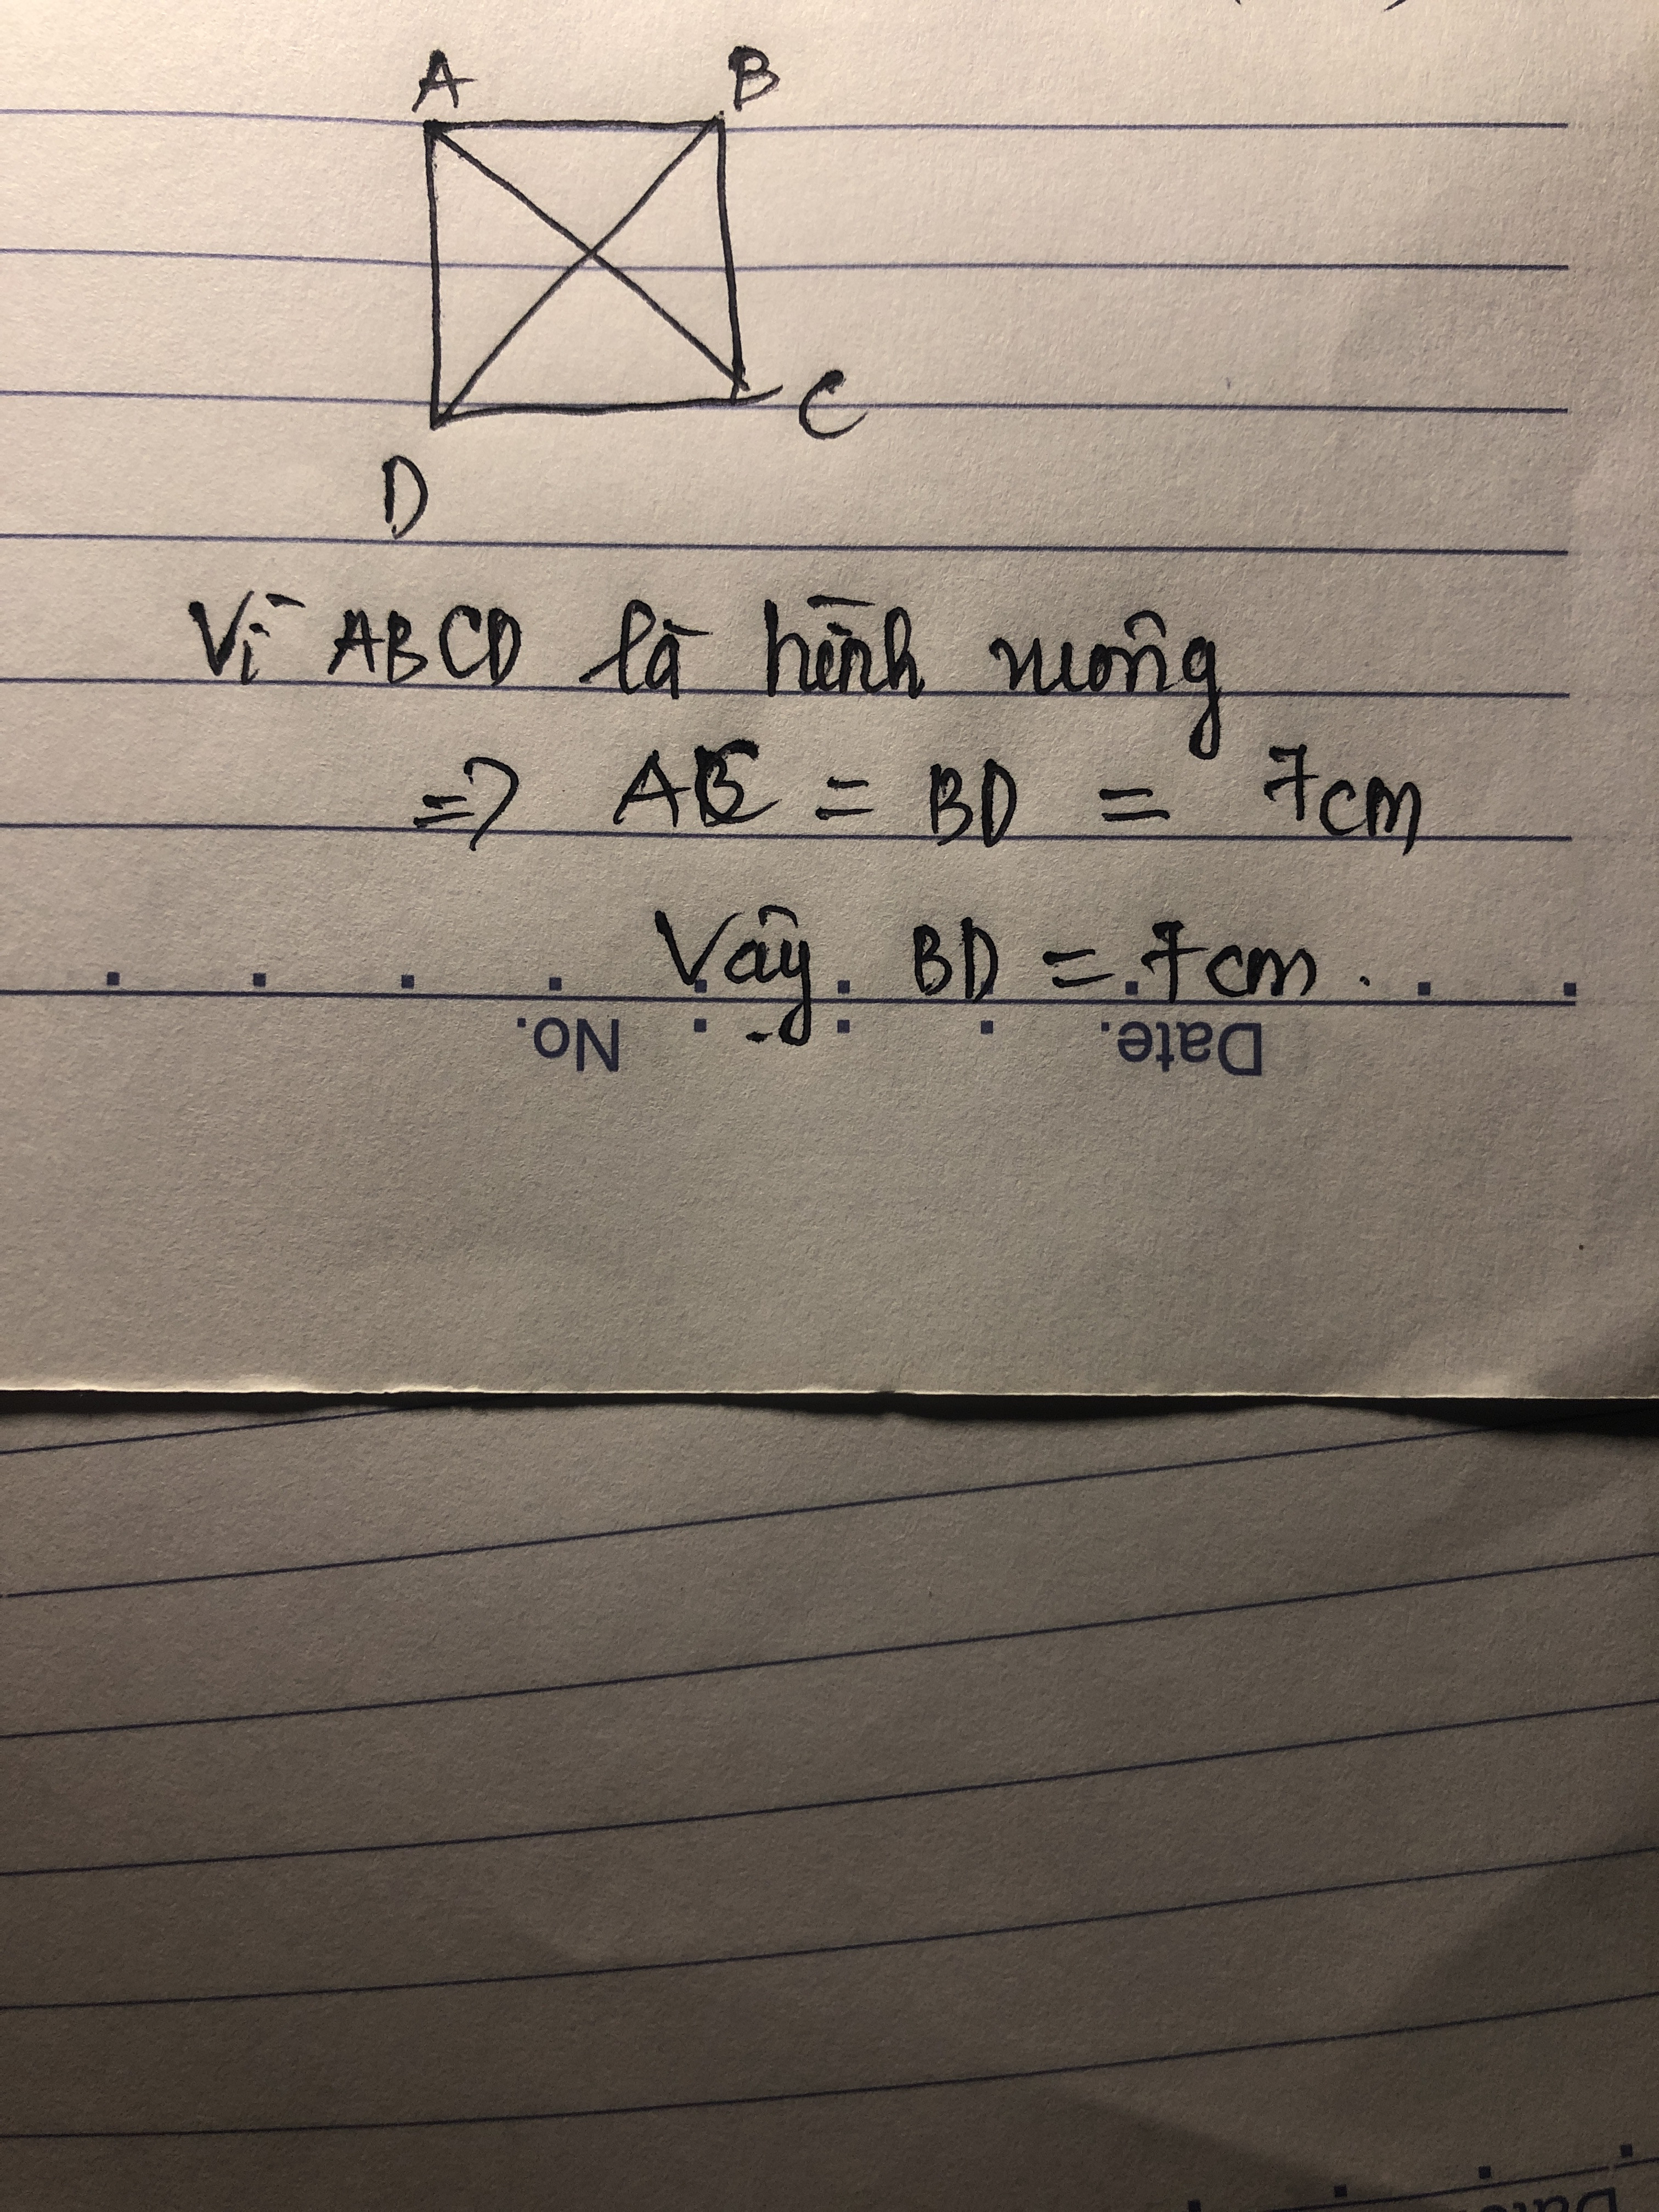 A B
C
D
Vì ABCD là hình vuông
=> AC = BD = 7cm
Vậy BD = 7cm.
No. Date.